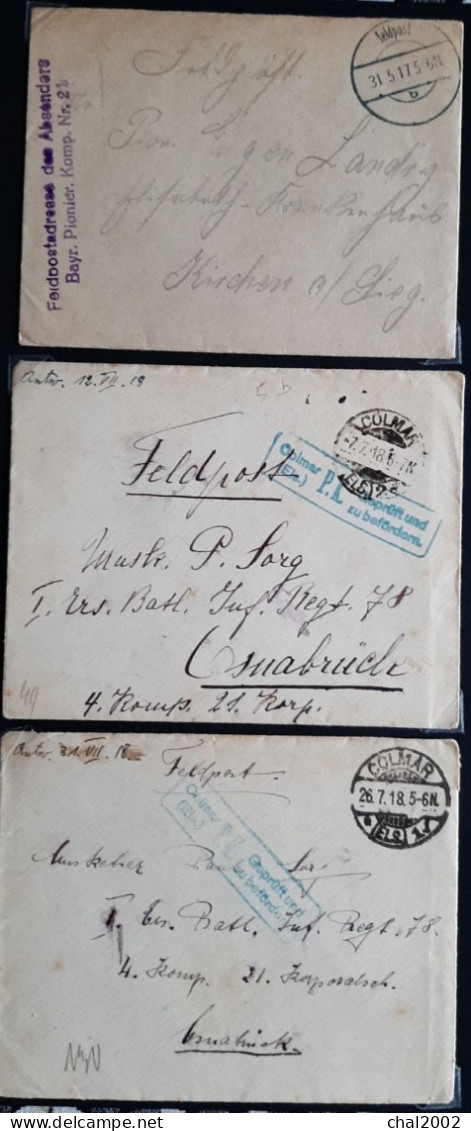 Feldpost
31.5.17 5-6N.
b
Feldpostadresse des Absenders
Bayr. Pionier. Komp. Nr. 21
Feldpost.
Pion. Eugen
Elisabeth-Krankenhaus
Kirchen a/Sieg.
Antw. 12.VII.18
COLMAR
-7.7.18.6-7N.
ELS.
Colmar
(Els.)
P.K.
Geprüft und
zu befördern.
Feldpost
Musk. P. Sorg
I. Ers. Batl. Inf. Regt. 78
Osnabrück
4. Komp. 21. Korp.
Antw. 31.VII.18
Feldpost
COLMAR
26.7.18.5-6N.
* ELS. 1
Colmar
(Els.)
P.K.
Geprüft und
zu befördern.
Musketier Paul Sorg
I. Ers. Batl. Inf. Regt. 78.
4. Komp. 21. Korporalsch.
Osnabrück.
chal2002